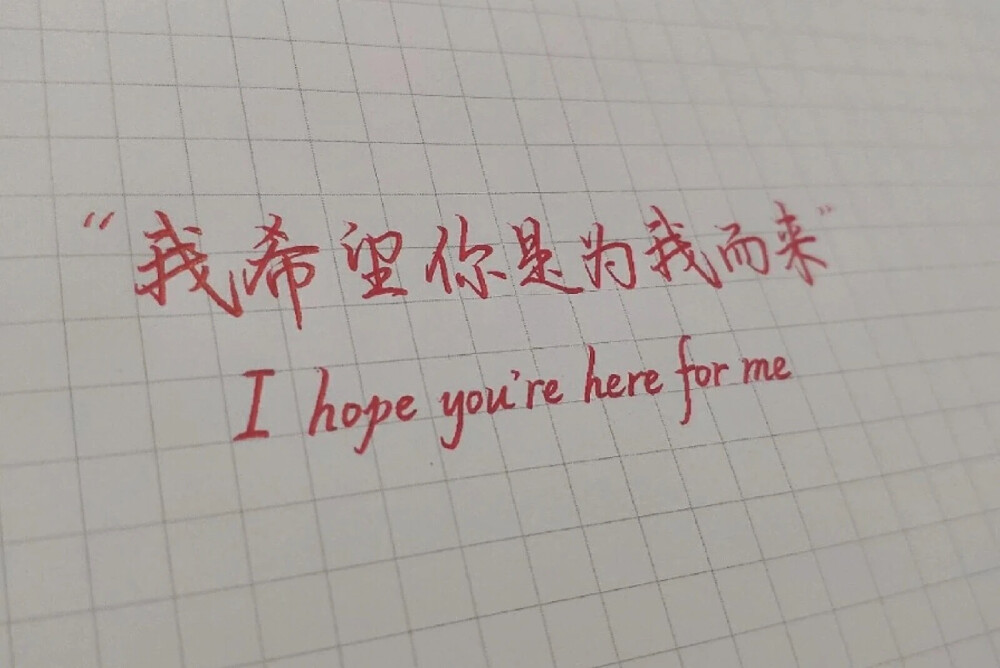 “我希望你是为我而来”
I hope you're here for me